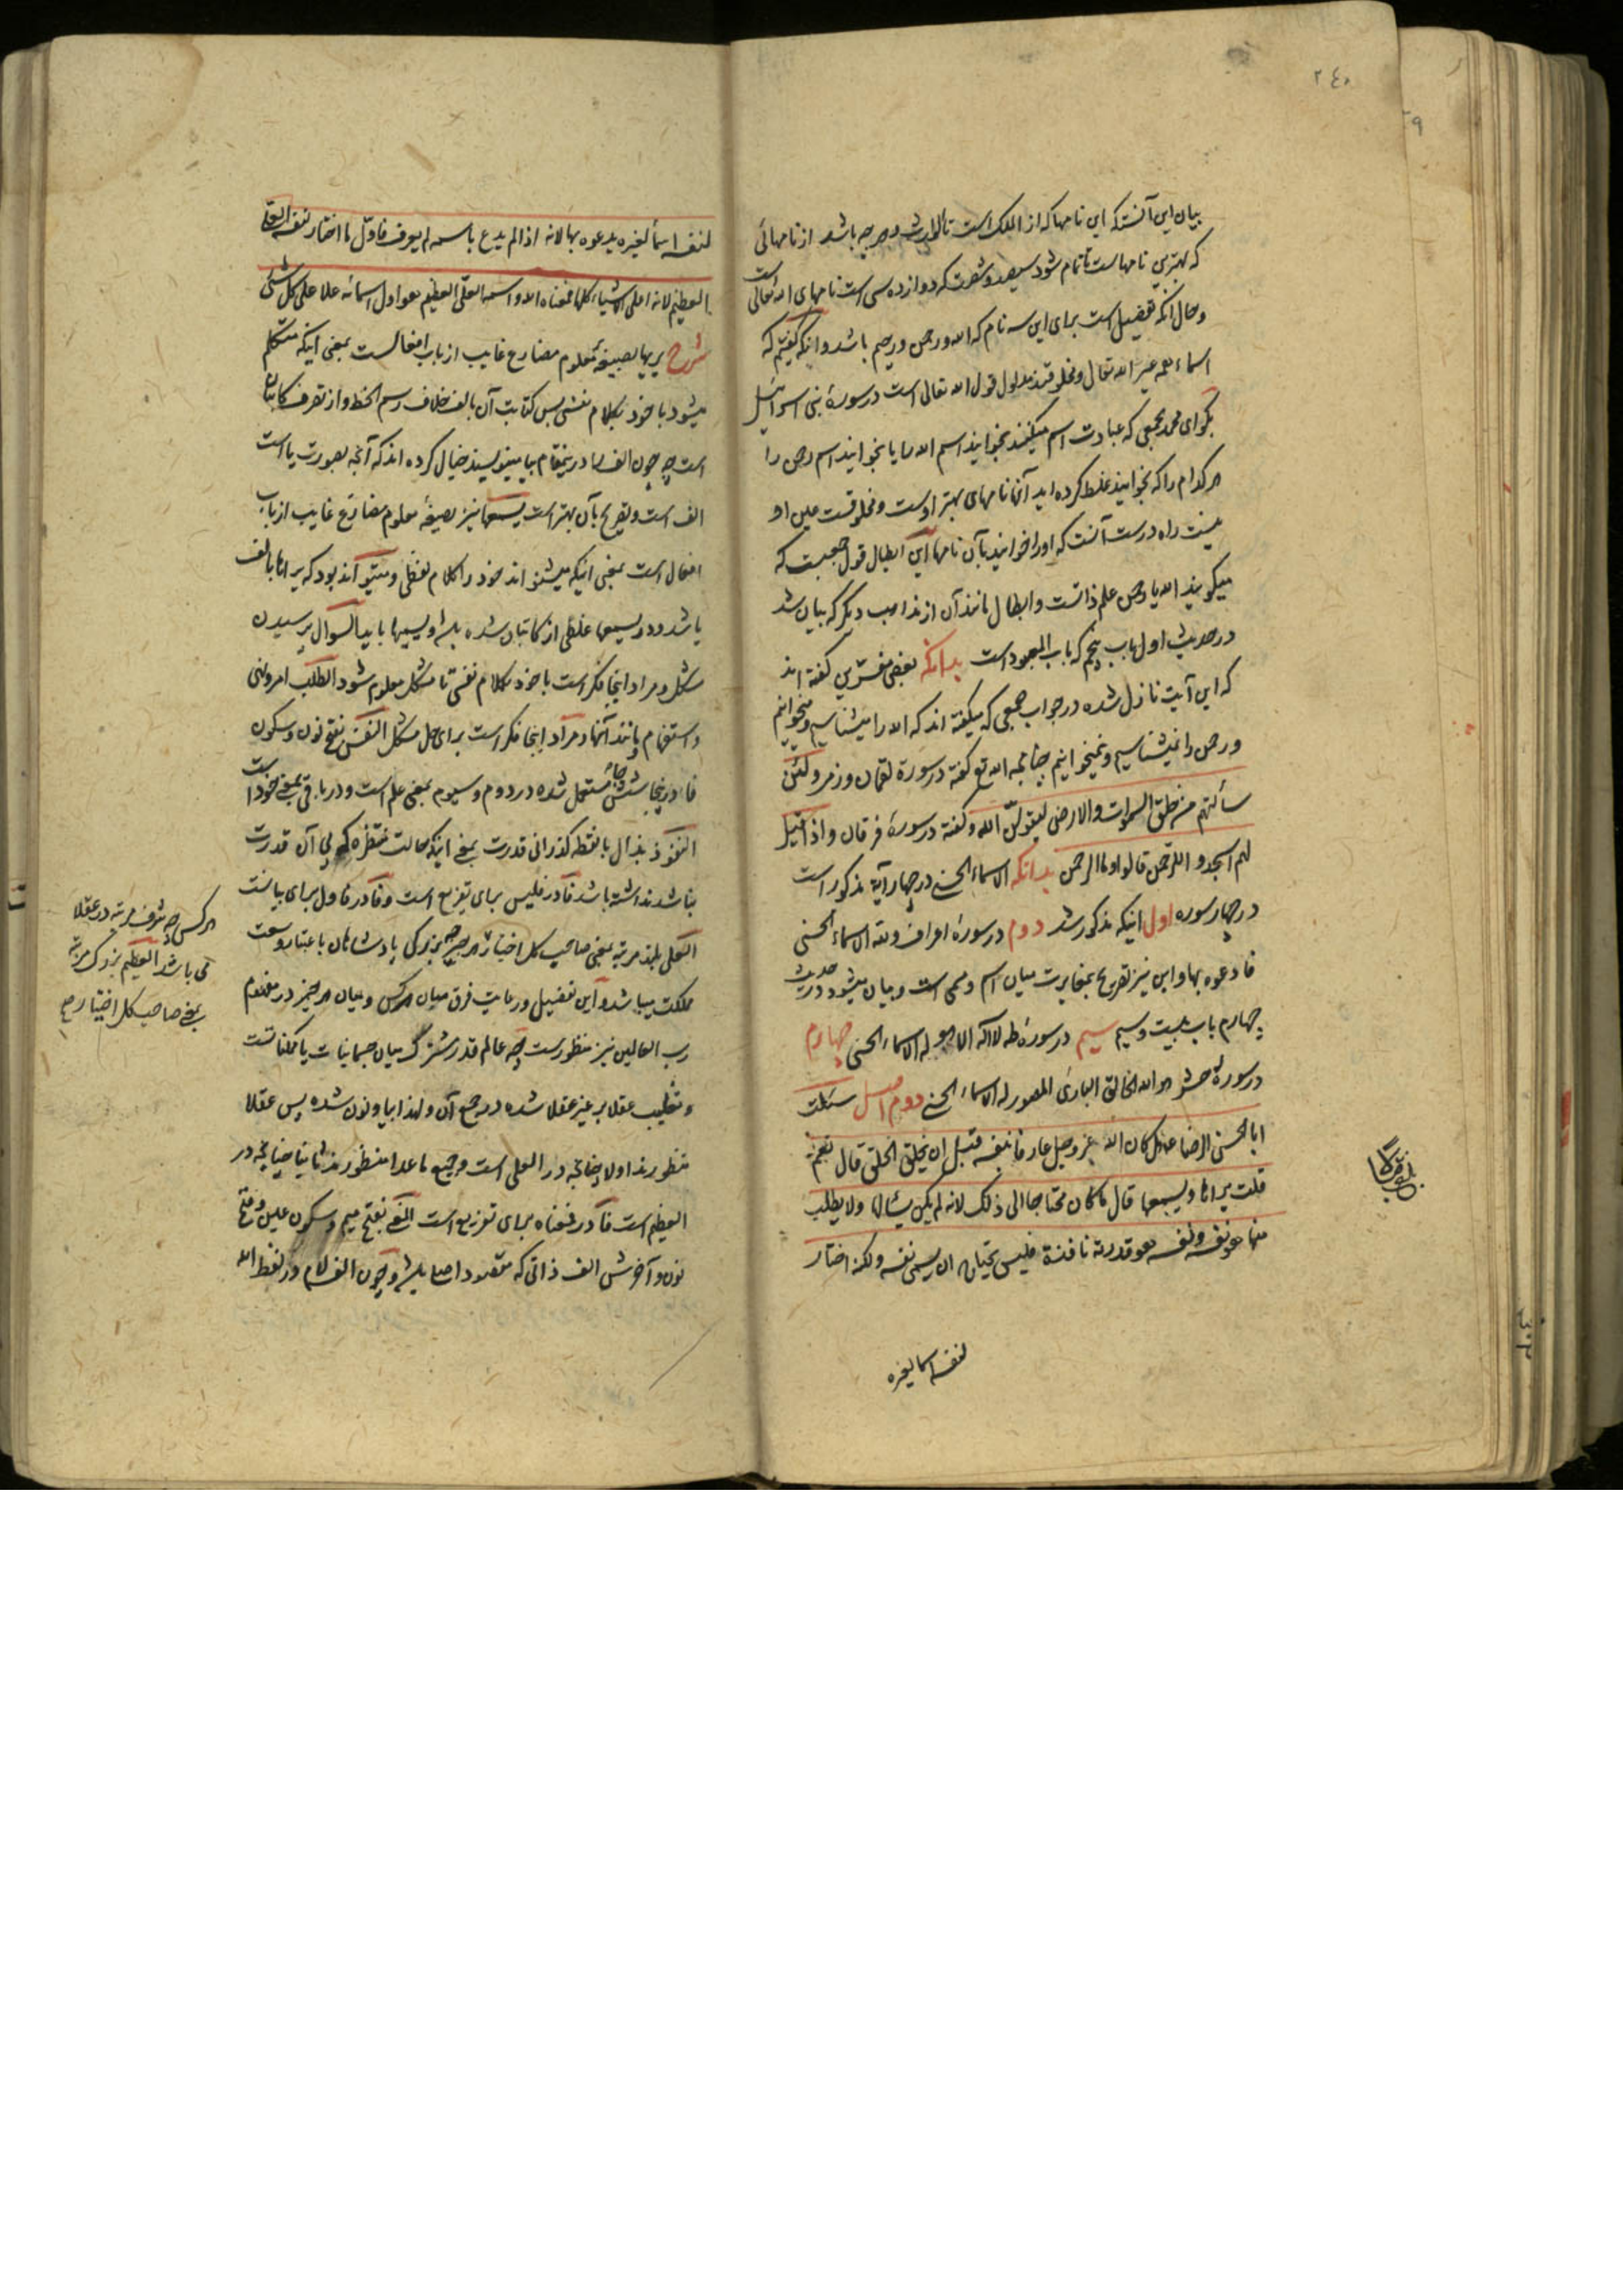 ٢٤٠
بیان این آنستکه این نامها که از الملک است تا الوارث و هر چه باشد از نامهائی
که بهترین نامها است تا تمام شود سیصد و شصت که دوازده سی است نامهای الله تعالی است
و حال آنکه تفضیل است برای این سه نام که الله و رحمن و رحیم باشد و اینکه گفتیم که
اسماء همه غیر الله تعالی و مخلوقند مدلول قول الله تعالی است در سورۀ بنی اسرائیل
بگو ای محمد بجمعی که عبادت اسم میکنند بخوانید اسم الله را یا بخوانید اسم رحمن را
هر کدام را که بخوانید غلط کرده اید آنها نامهای بهتر اوست و مخلوقست عین او
نیست راه درست آنست که او را خوانید بآن نامها این ابطال قول جمعیست که
میگویند الله یا رحمن علم ذاتست و ابطال مانند آن از مذاهب دیگر که بیان شد
در حدیث اول باب پنجم که باب المعبود است بدانکه بعضی مفسرین گفته اند
که این آیت نازل شده در جواب جمعی که میگفته اند که الله را میشناسیم و میخوانیم
و رحمن را نمیشناسیم و نمیخوانیم چنانچه الله تع گفته در سورۀ لقمان و زمر و لئن
سألتهم من خلق السموات والارض لیقولنّ الله و گفته در سورۀ فرقان و اذا قیل
لهم اسجدوا للرحمن قالوا و ما الرحمن بدانکه الاسماء الحسنی در چهار آیه مذکور است
در چهار سوره اول اینکه مذکور شد دوم در سورۀ اعراف ولله الاسماء الحسنی
فادعوه بها و این نیز تصریح بمغایرت میان اسم و مسمی است و بیان میشود در حدیث
چهارم باب بیست و سیم سیم در سورۀ طه لا اله الا هو له الاسماء الحسنی چهارم
در سورۀ حشر هو الله الخالق الباری المصور له الاسماء الحسنی دوم اصل سئلت
ابا الحسن الرضا ع هل کان الله عز وجل عارفا بنفسه قبل ان یخلق الخلق قال نعم
قلت یراها ویسمعها قال ما کان محتاجا الی ذلک لانه لم یکن یسألها ولا یطلب
منها هو نفسه ونفسه هو قدرته نافذة فلیس یحتاج ان یسمی نفسه ولکنه اختار
لنفسه اسما لغیره
لنفسه اسماً لغیره یدعوه بها لانه اذا لم یدع باسمه لم یعرف فاول ما اختار لنفسه العلی
العظیم لانه اعلی الاشیاء کلها فمعناه الله واسمه العلی العظیم هو اول اسمائه علا علی کل شئ
شرح یریها بصیغۀ معلوم مضارع غایب از باب افعالست بمعنی اینکه متکلم
میشود با خود بکلام نفسی پس کتابت آن بالف خلاف رسم الخط و از تصرف کاتبان
است چه چون الف را در ینمقام بیا مینویسند خیال کرده اند که آنچه بصورت یا است
الف است و تصریح بآن بهتر است یسمعها نیز بصیغۀ معلوم مضارع غایب از باب
افعال است بمعنی اینکه میشنواند خود را کلام لفظی و میتواند بود که یراها بالف
باشد و در یسمعها غلطی از کاتبان شده باشد و یسیها با بیا السؤال پرسیدن
مشکل و مراد اینجا فکر است با خود بکلام نفسی تا مشکل معلوم شود الطلب امر و نهی
و استفهام و مانند آنها و مراد اینجا فکر است برای حل مشکل النفس بفتح نون و سکون
فا در ینجا شش جا مستعمل شده در دوم و سیوم بمعنی علم است و در باقی بمعنی خود است
النفوذ بذال با نقطه گذرانی قدرت بمعنی اینکه حالت منتظره که بی آن قدرت
نباشد نداشته باشد فا در فلیس برای تفریع است و فا در فاول برای بیانست
العلی بلند مرتبه بمعنی صاحب کل اختیار هر چیز چه بزرگی پادشاهان باعتبار وسعت
مملکت میباشد و این تفضیل و رعایت فرق میان هر کس و میان هر چیز در مفهوم
رب العالمین نیز منظورست چه عالم قدر مشترک میان جسمانیات یا ممکناتست
و تغلیب عقلا بر غیر عقلا شده در جمع آن و لهذا بیا و نون شده پس عقلا
منظورند اولا چنانچه در العلی است و جمیع ماعدا منظورند ثانیا چنانچه در
العظیم است فا در فمعناه برای تفریع است المعنی بفتح میم و سکون عین و فتح
نون و آخرش الف ذاتی که مقصود اصلی باشد و چون الف لام در لفظ الله
هر کس چه شرف مرتبه در عقلا
می باشد العظیم بزرگ مرتبه
بمعنی صاحب کل اختیار ص